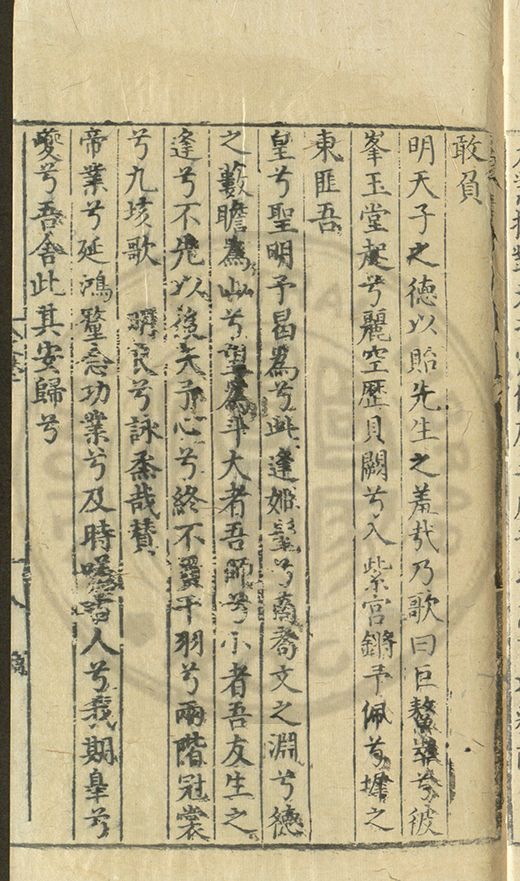 敢負
明天子之德以貽先生之羞哉乃歌曰巨鰲舉兮彼
峯玉堂起兮麗空歷貝闕兮入紫宮鏘予佩兮攄之
東匪吾
皇兮聖明予曷為兮此逢姬髦兮商喬文之淵兮德
之藪瞻為山兮望為斗大者吾師兮小者吾友生之
逢兮不先以後矢予心兮終不干羽兮兩階冠裳
兮九垓歌 明良兮詠喜哉贊
帝業兮延鴻釐念功業兮及時嗟若人兮我期皐兮
夔兮吾舍此其安歸兮